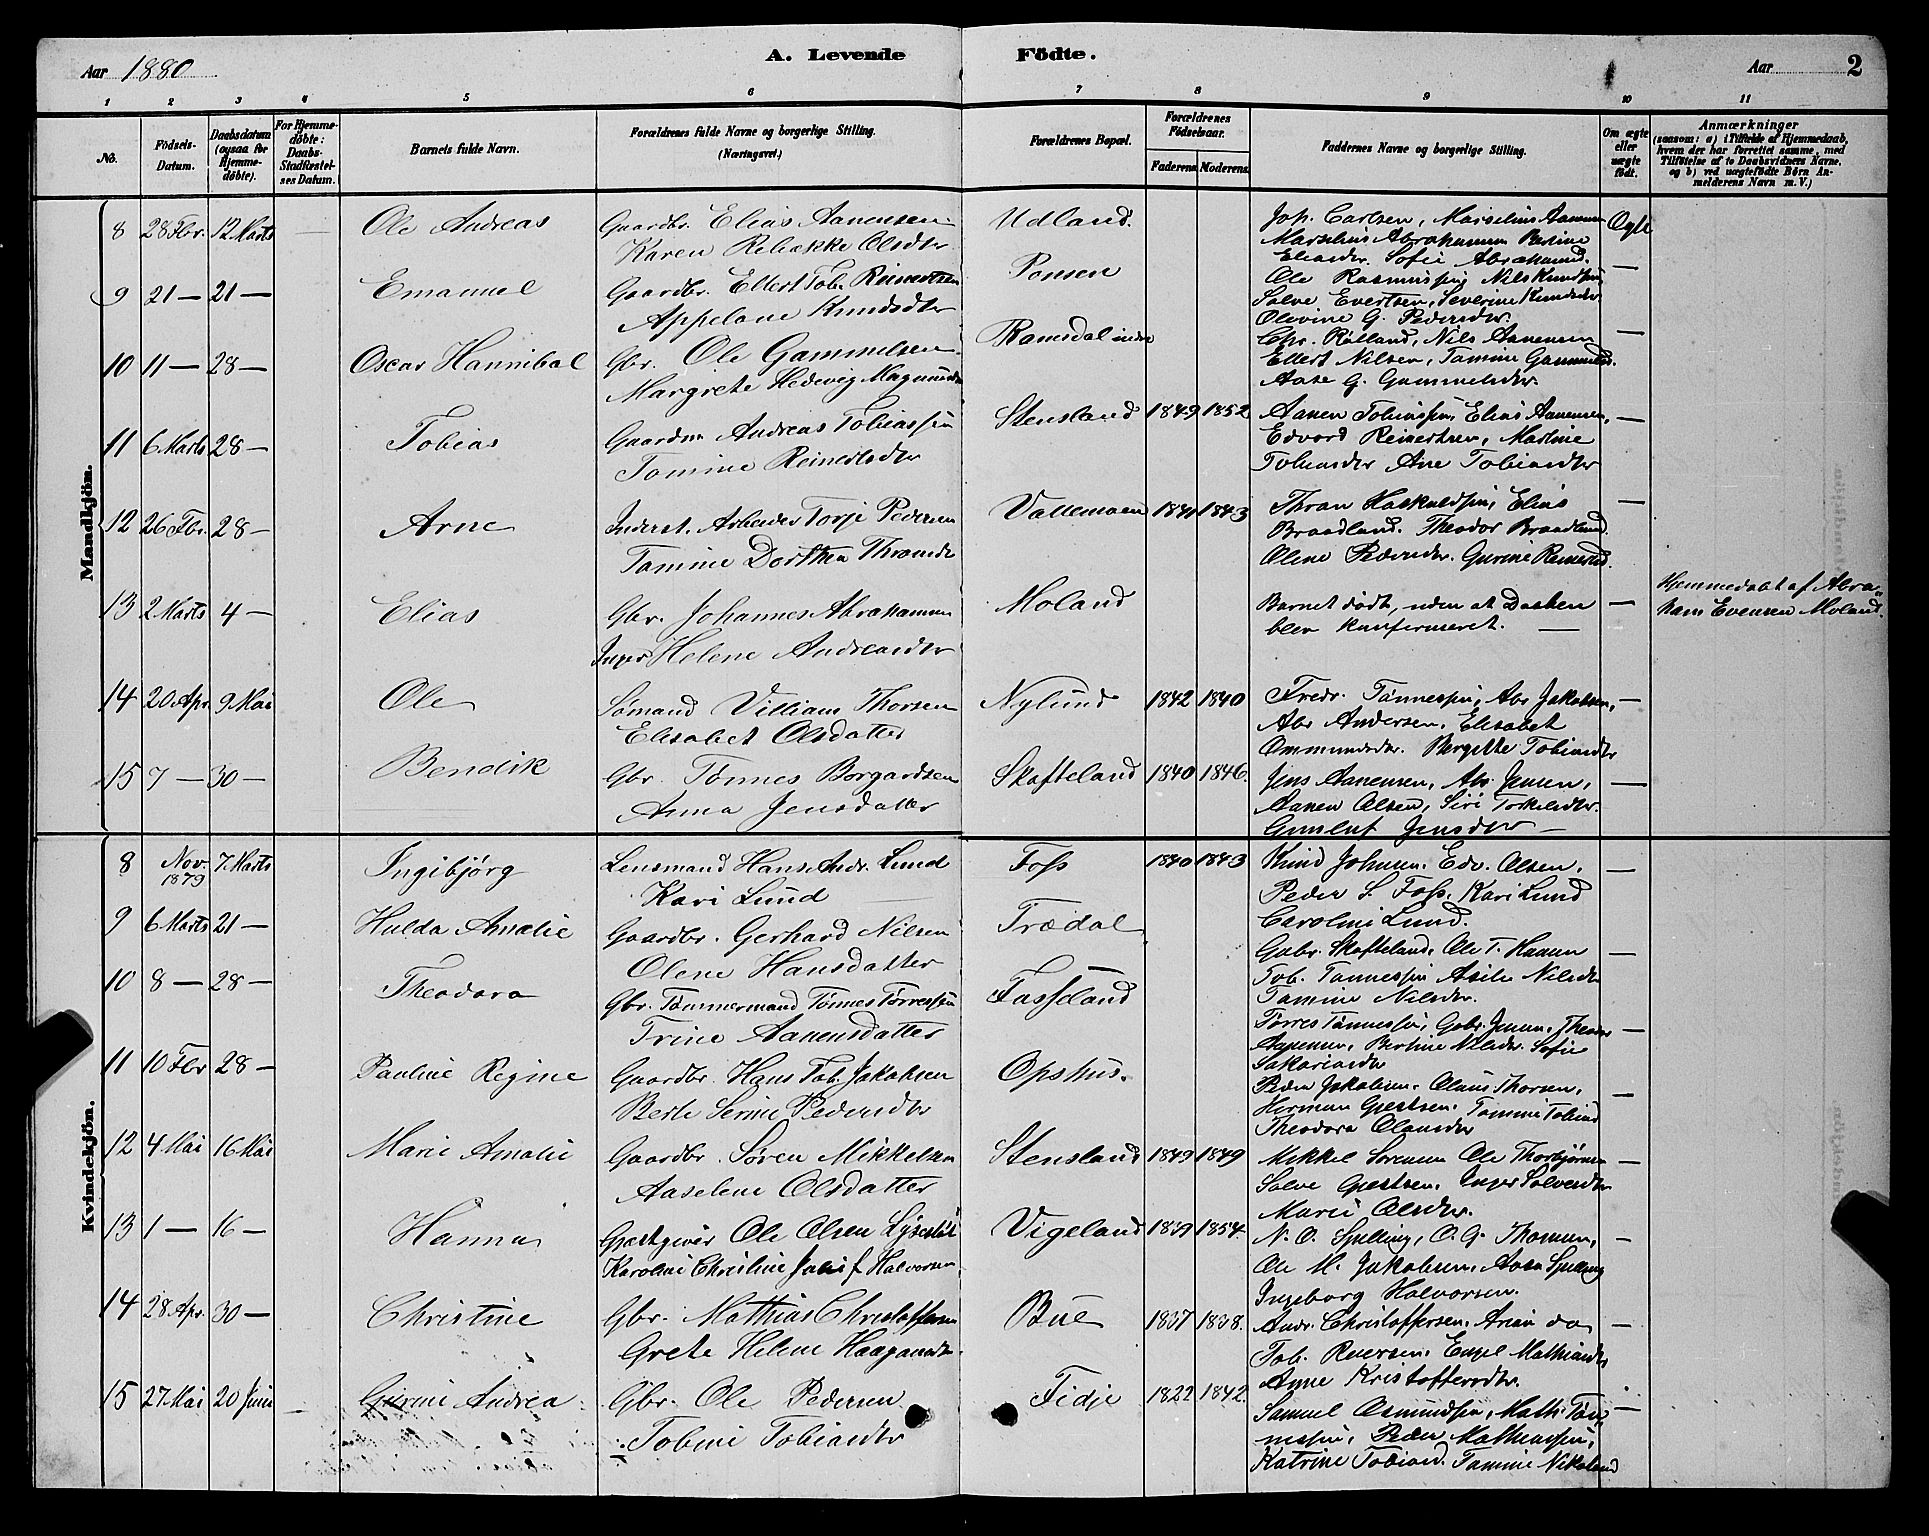 Aar 1880
A. Levende Födte.
Aar 2
1 2 3 4 5 6 7 8 9 10 11
No.
Födsels-Datum.
Daabsdatum (ogsaa for Hjemme-døbte).
For Hjemme-døbte: Daabs-Stadfæstel-ses Datum.
Barnets fulde Navn.
Forældrenes fulde Navne og borgerlige Stilling. (Næringsvei.)
Forældrenes Bopæl.
Forældrenes Födselsaar.
Faderens Moderens
Faddernes Navne og borgerlige Stilling.
Om ægte eller uægte født.
Anmærkninger
(saasom: a) i Tilfælde af Hjemmedaab, hvem der har forrettet samme, med Tilføielse af to Daabsvidners Navne, og b) ved uægtefødte Børn An-melderens Navn m. V.)
Mandkjön.
8 28 Fbr. 12 Marts Ole Andreas Gaardbr. Elias Aanensen Udland. Joh. Carlsen, Marselius Aanensen Ægte
Karen Rebekke Olsdtr Marselius Abrahamsen
Eliasdtr. Sofie
9 21 — 21 — Emanuel Gaardbr. Ellert Tob. Reinertsen Ole Rasmussen, Nils Knudsen —
Appelone Knudsdtr Salve Evertsen, Severine Knudsdtr.
Olevine G. Pedersdtr.
10 11 — 28 — Oscar Hannibal Gbr. Ole Gammelsen Ramsdal indre Chr. Røiland, Nils Aanensen —
Margrete Hedevig Ellert Nilsen, Tamine
Aase G. Gammelsdtr.
11 6 Marts 28 — Tobias Gaardm Andreas Tobiassen Stensland 1849 1852 Aanen Tobiassen, Elias Aanensen, —
Tomine Reinertsdtr Edvard Reinertsen, Martine
Tobiasdtr Ane Tobiasdtr
12 26 Fbr. 28 — Arne Inderst. Arbeider Torje Pedersen Vallemoen 1843 Elias —
Tomine Dorthea Braadland. Theodor Braadland
Olene Pedersdtr.
13 2 Marts 4 — Elias Gbr. Johannes Abrahamsen Moland Barnet døde, uden at Daaben — Hjemmedøbt af Abra-
Inger Helene Andreasdtr blev konfirmeret. — ham Evensen Moland.
14 20 Apr. 9 Mai Ole Sømand Villiam Thorsen Nylund 1842 1840 Fredr. Tønnessen, Abr Jakobsen, —
Elisabet Olsdatter Abr Andersen. Elisabet
Ommundsdtr. Bergitte Tobiasdtr
15 7 — 30 — Bendik Gbr. Tønnes Borgardsen Skofteland 1840 1846. Jens Aanensen, Abr. Jensen, —
Anna Jensdatter Aanen Olsen, Siri Torkelsdtr.
Jensdtr —
Kvindekjön.
8 Nov. 1879 7 Marts Ingibjørg Lensmand Hans Andr. Lund Foss 1840 1843 Knud Johnsen. Edv. Olsen. —
Kari Lund Peder S. Foss. Kari Lund
Caroline Lund.
9 6 Marts 21 — Hulda Amalie Gaardbr. Gerhard Nilsen Trædal Gabr. Skofteland. Ole T. —
Olene Hansdatter Tob. Tønnessen Nilsdtr
Tamine Nilsdtr.
10 8 — 28 — Theodora Gbr. Tømmermand Tønnes Tørressen Fasseland Tørres Tønnessen, Gabr. Jensen. —
Trine Aanensdatter Bertine Nilsdtr. Sofie
Sakariasdtr
11 10 Fbr 28 — Pauline Regine Gaardbr. Hans Tob. Jakobsen Opshus. Peder Jakobsen. Olaus Thorsen. —
Berte Serine Pedersdtr Herman Gjertsen.
Theodora Olausdtr
12 4 Mai 16 Mai Marie Amalie Gaardbr. Søren Mikkelsen Stensland 1849 1849 Mikkel Sørensen Ole Thorbjørnsen —
Aaselene Olsdatter Salve Gjertsen. Inger Salvesdtr
Marie Olsdtr.
13 1 — 16 — Hanna Gjæstgiver Ole Olsen Vigeland 1839 1854. N. O. Spilling, O. G. Thomsen, —
Karoline Christine f Halvorsen. Ole M. Jakobsen. Aasa Spilling
Ingeborg Halvorsen.
14 28 Apr. 30 — Christine Gbr. Mathias Christoffersen Bue 1837 1838. Andr. Christoffersen. —
Grete Helene Tob. Reiersen. Engel Mathiasdtr
Anne Kristoffersdtr.
15 27 Mai 20 Juni — Gurine Andrea Gbr. Ole Pedersen Fidje 1822 1842. Samuel Osmundsen, Math. Tøn- —
Tobine Tobiasdtr nessen. Peder Mathiassen,
Katrine